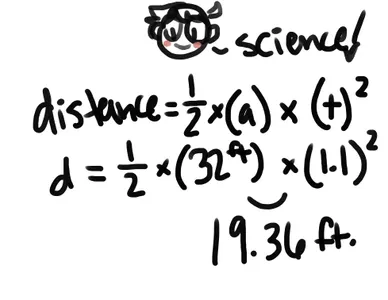 science!
distance = 1/2 × (a) × (t)²
d = 1/2 × (32ft) × (1.1)²
19.36 ft.